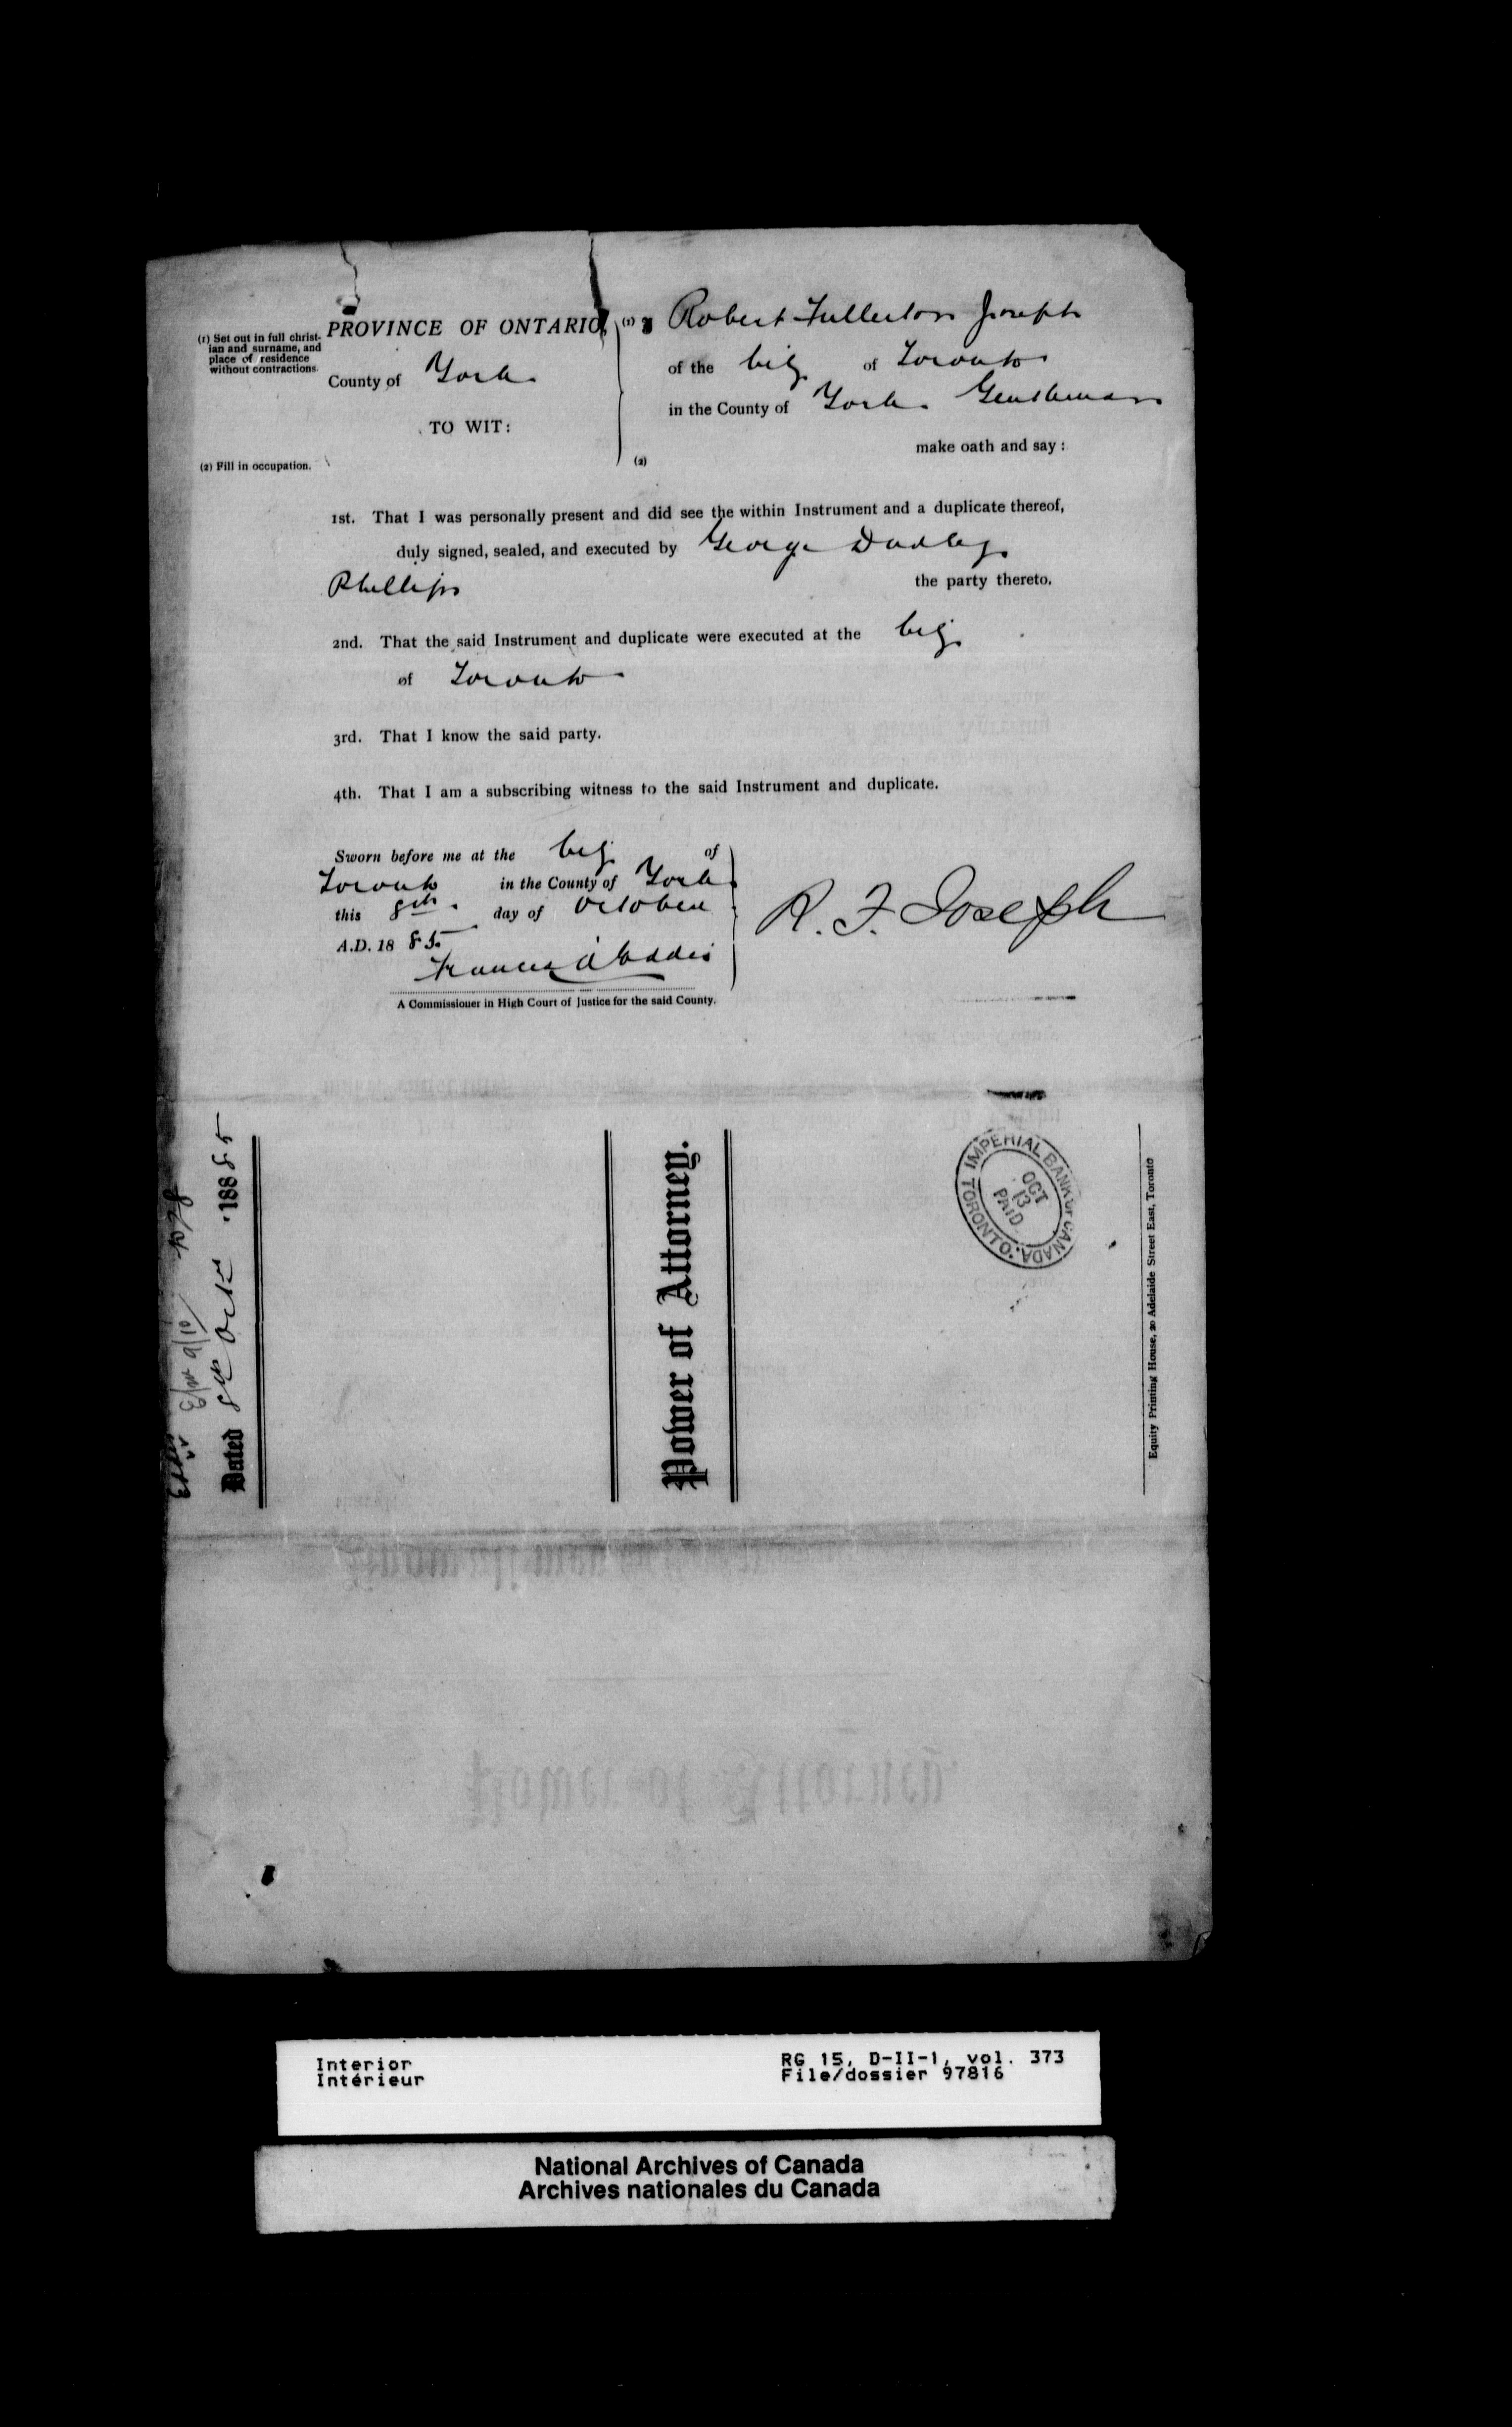 (1) Set out in full christ-
ian and surname, and
place of residence
without contractions.
PROVINCE OF ONTARIO,
County of York
TO WIT:
(2) Fill in occupation.
(1) I Robert Fullerton Joseph
of the City of Toronto
in the County of York Gentleman
(2) make oath and say:
1st. That I was personally present and did see the within Instrument and a duplicate thereof,
duly signed, sealed, and executed by George Dudley
Phillips the party thereto.
2nd. That the said Instrument and duplicate were executed at the City
of Toronto
3rd. That I know the said party.
4th. That I am a subscribing witness to the said Instrument and duplicate.
Sworn before me at the City of
Toronto in the County of York
this 8th day of October
A.D. 1885
Francis Eddis
A Commissioner in High Court of Justice for the said County.
R. F. Joseph
Dated 8th Octr 1885
Power of Attorney.
IMPERIAL BANK OF CANADA
OCT
13
PAID
TORONTO
Equity Printing House, 20 Adelaide Street East, Toronto
Interior
Intérieur
RG 15, D-II-1, vol. 373
File/dossier 97816
National Archives of Canada
Archives nationales du Canada